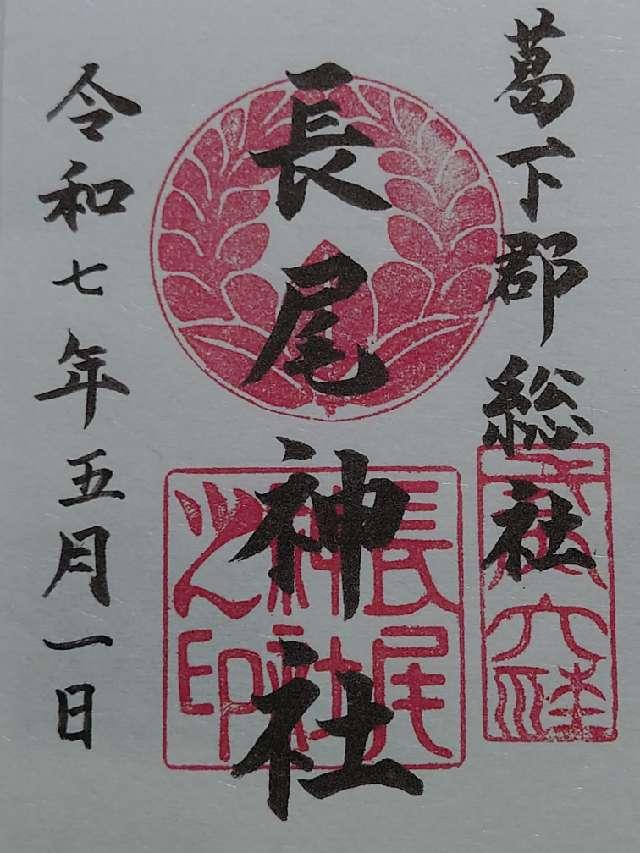 葛下郡総社
長尾神社
令和七年五月一日
長尾
神社
之印